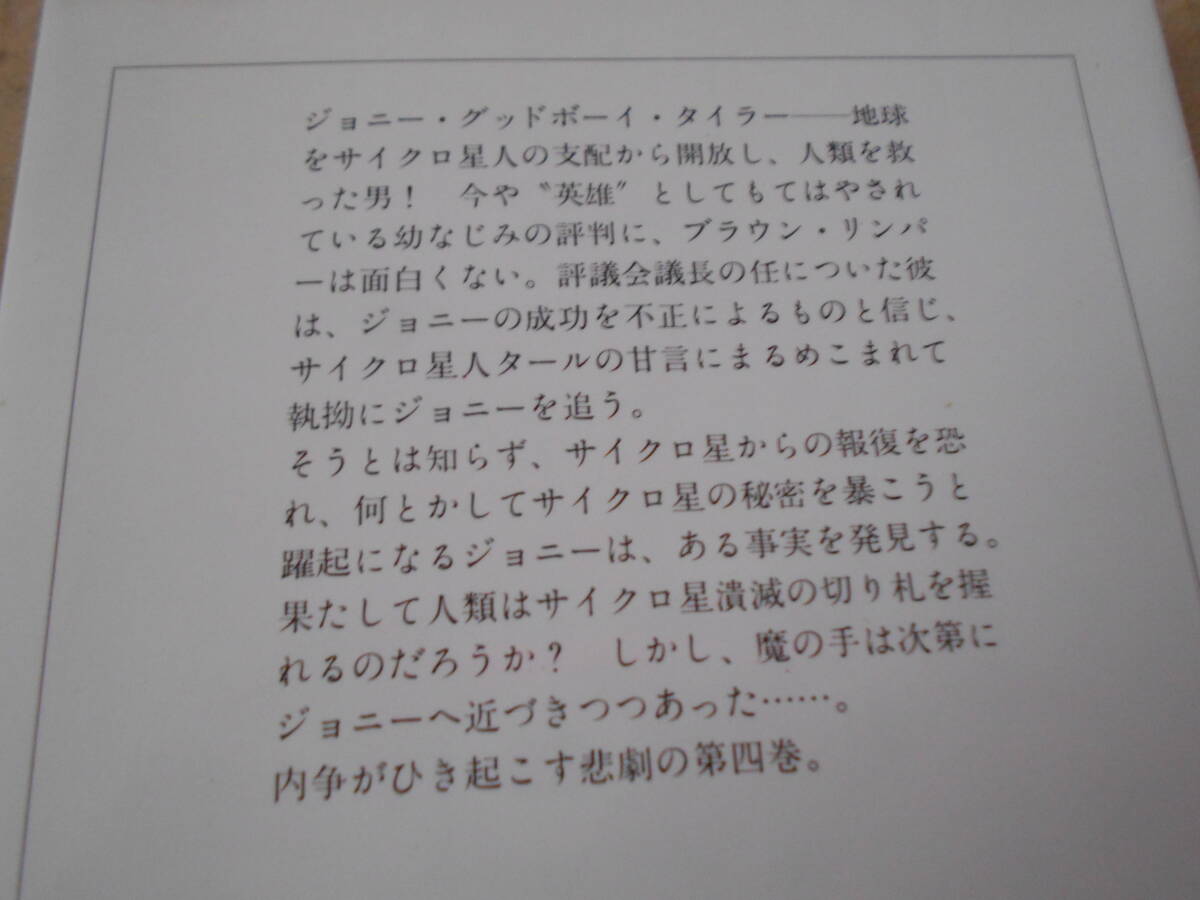 ジョニー・グッドボーイ・タイラー――地球
をサイクロ星人の支配から開放し、人類を救
った男！　今や〝英雄〟としてもてはやされ
ている幼なじみの評判に、ブラウン・リンパ
ーは面白くない。評議会議長の任についた彼
は、ジョニーの成功を不正によるものと信じ、
サイクロ星人タールの甘言にまるめこまれて
執拗にジョニーを追う。
そうとは知らず、サイクロ星からの報復を恐
れ、何とかしてサイクロ星の秘密を暴こうと
躍起になるジョニーは、ある事実を発見する。
果たして人類はサイクロ星潰滅の切り札を握
れるのだろうか？　しかし、魔の手は次第に
ジョニーへ近づきつつあった……。
内争がひき起こす悲劇の第四巻。